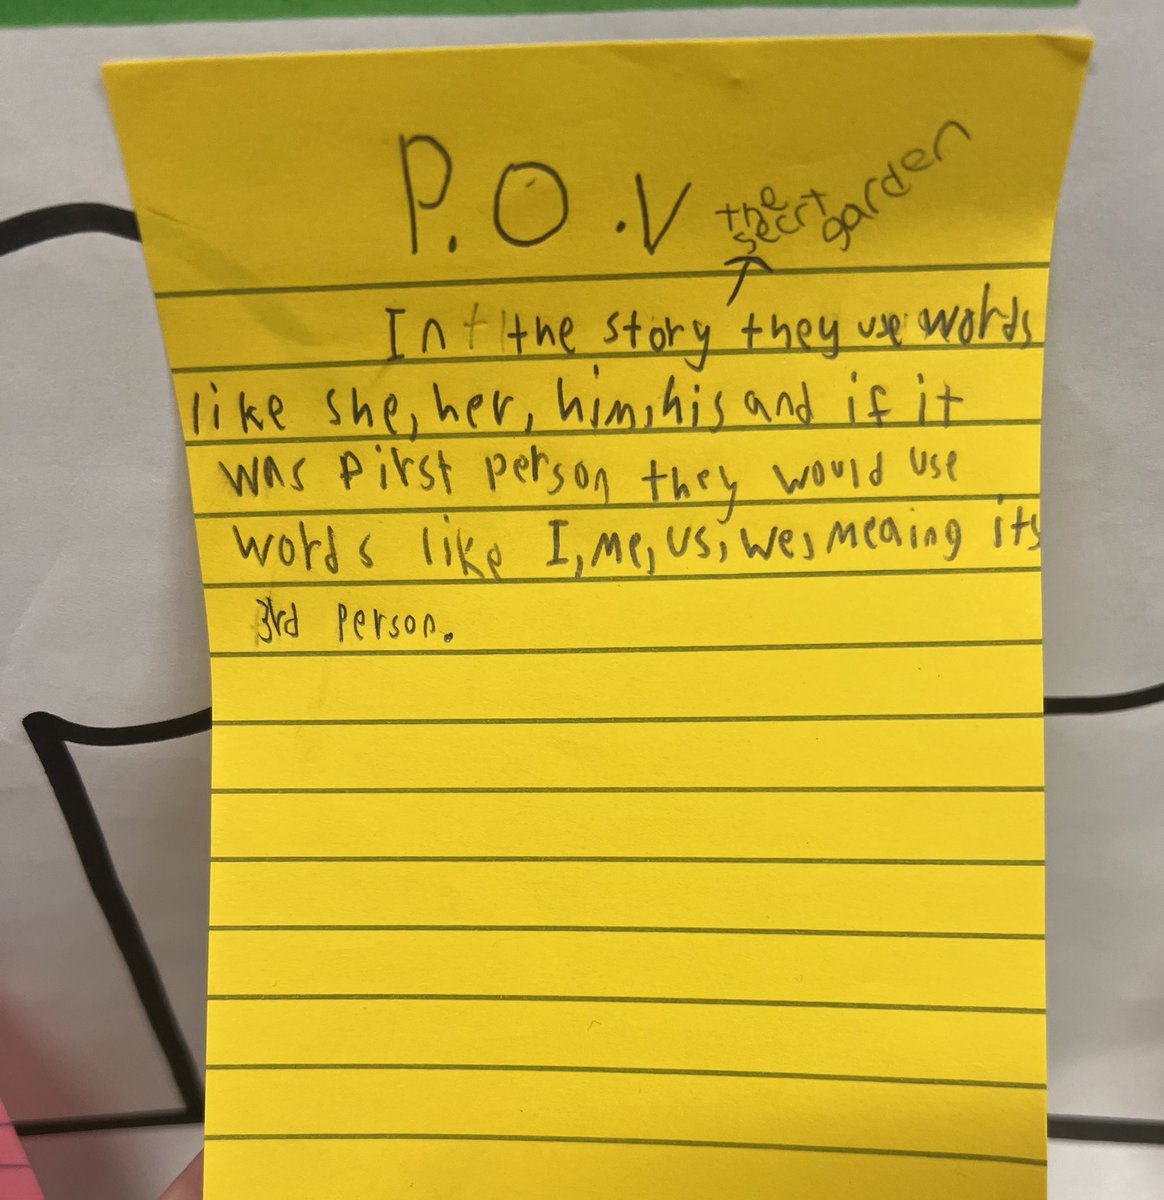 P.O.V
the
secrt garden
In the story they use words
like she, her, him, his and if it
was first person they would use
words like I, me, us, we, meaing its
3rd person.